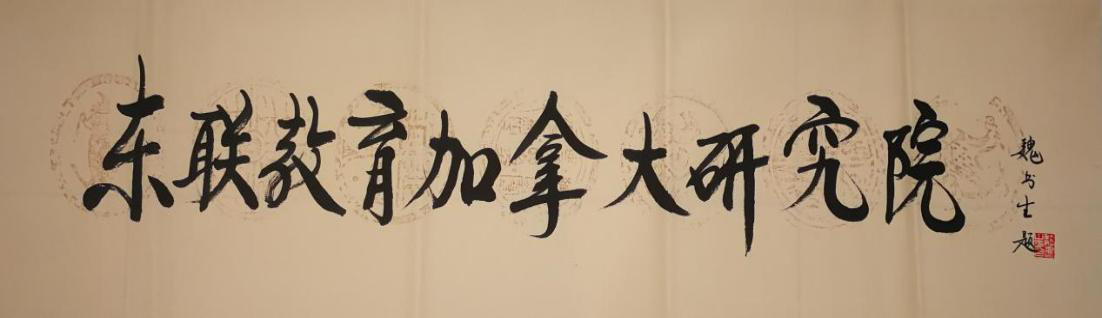 东联教育加拿大研究院
魏书生题